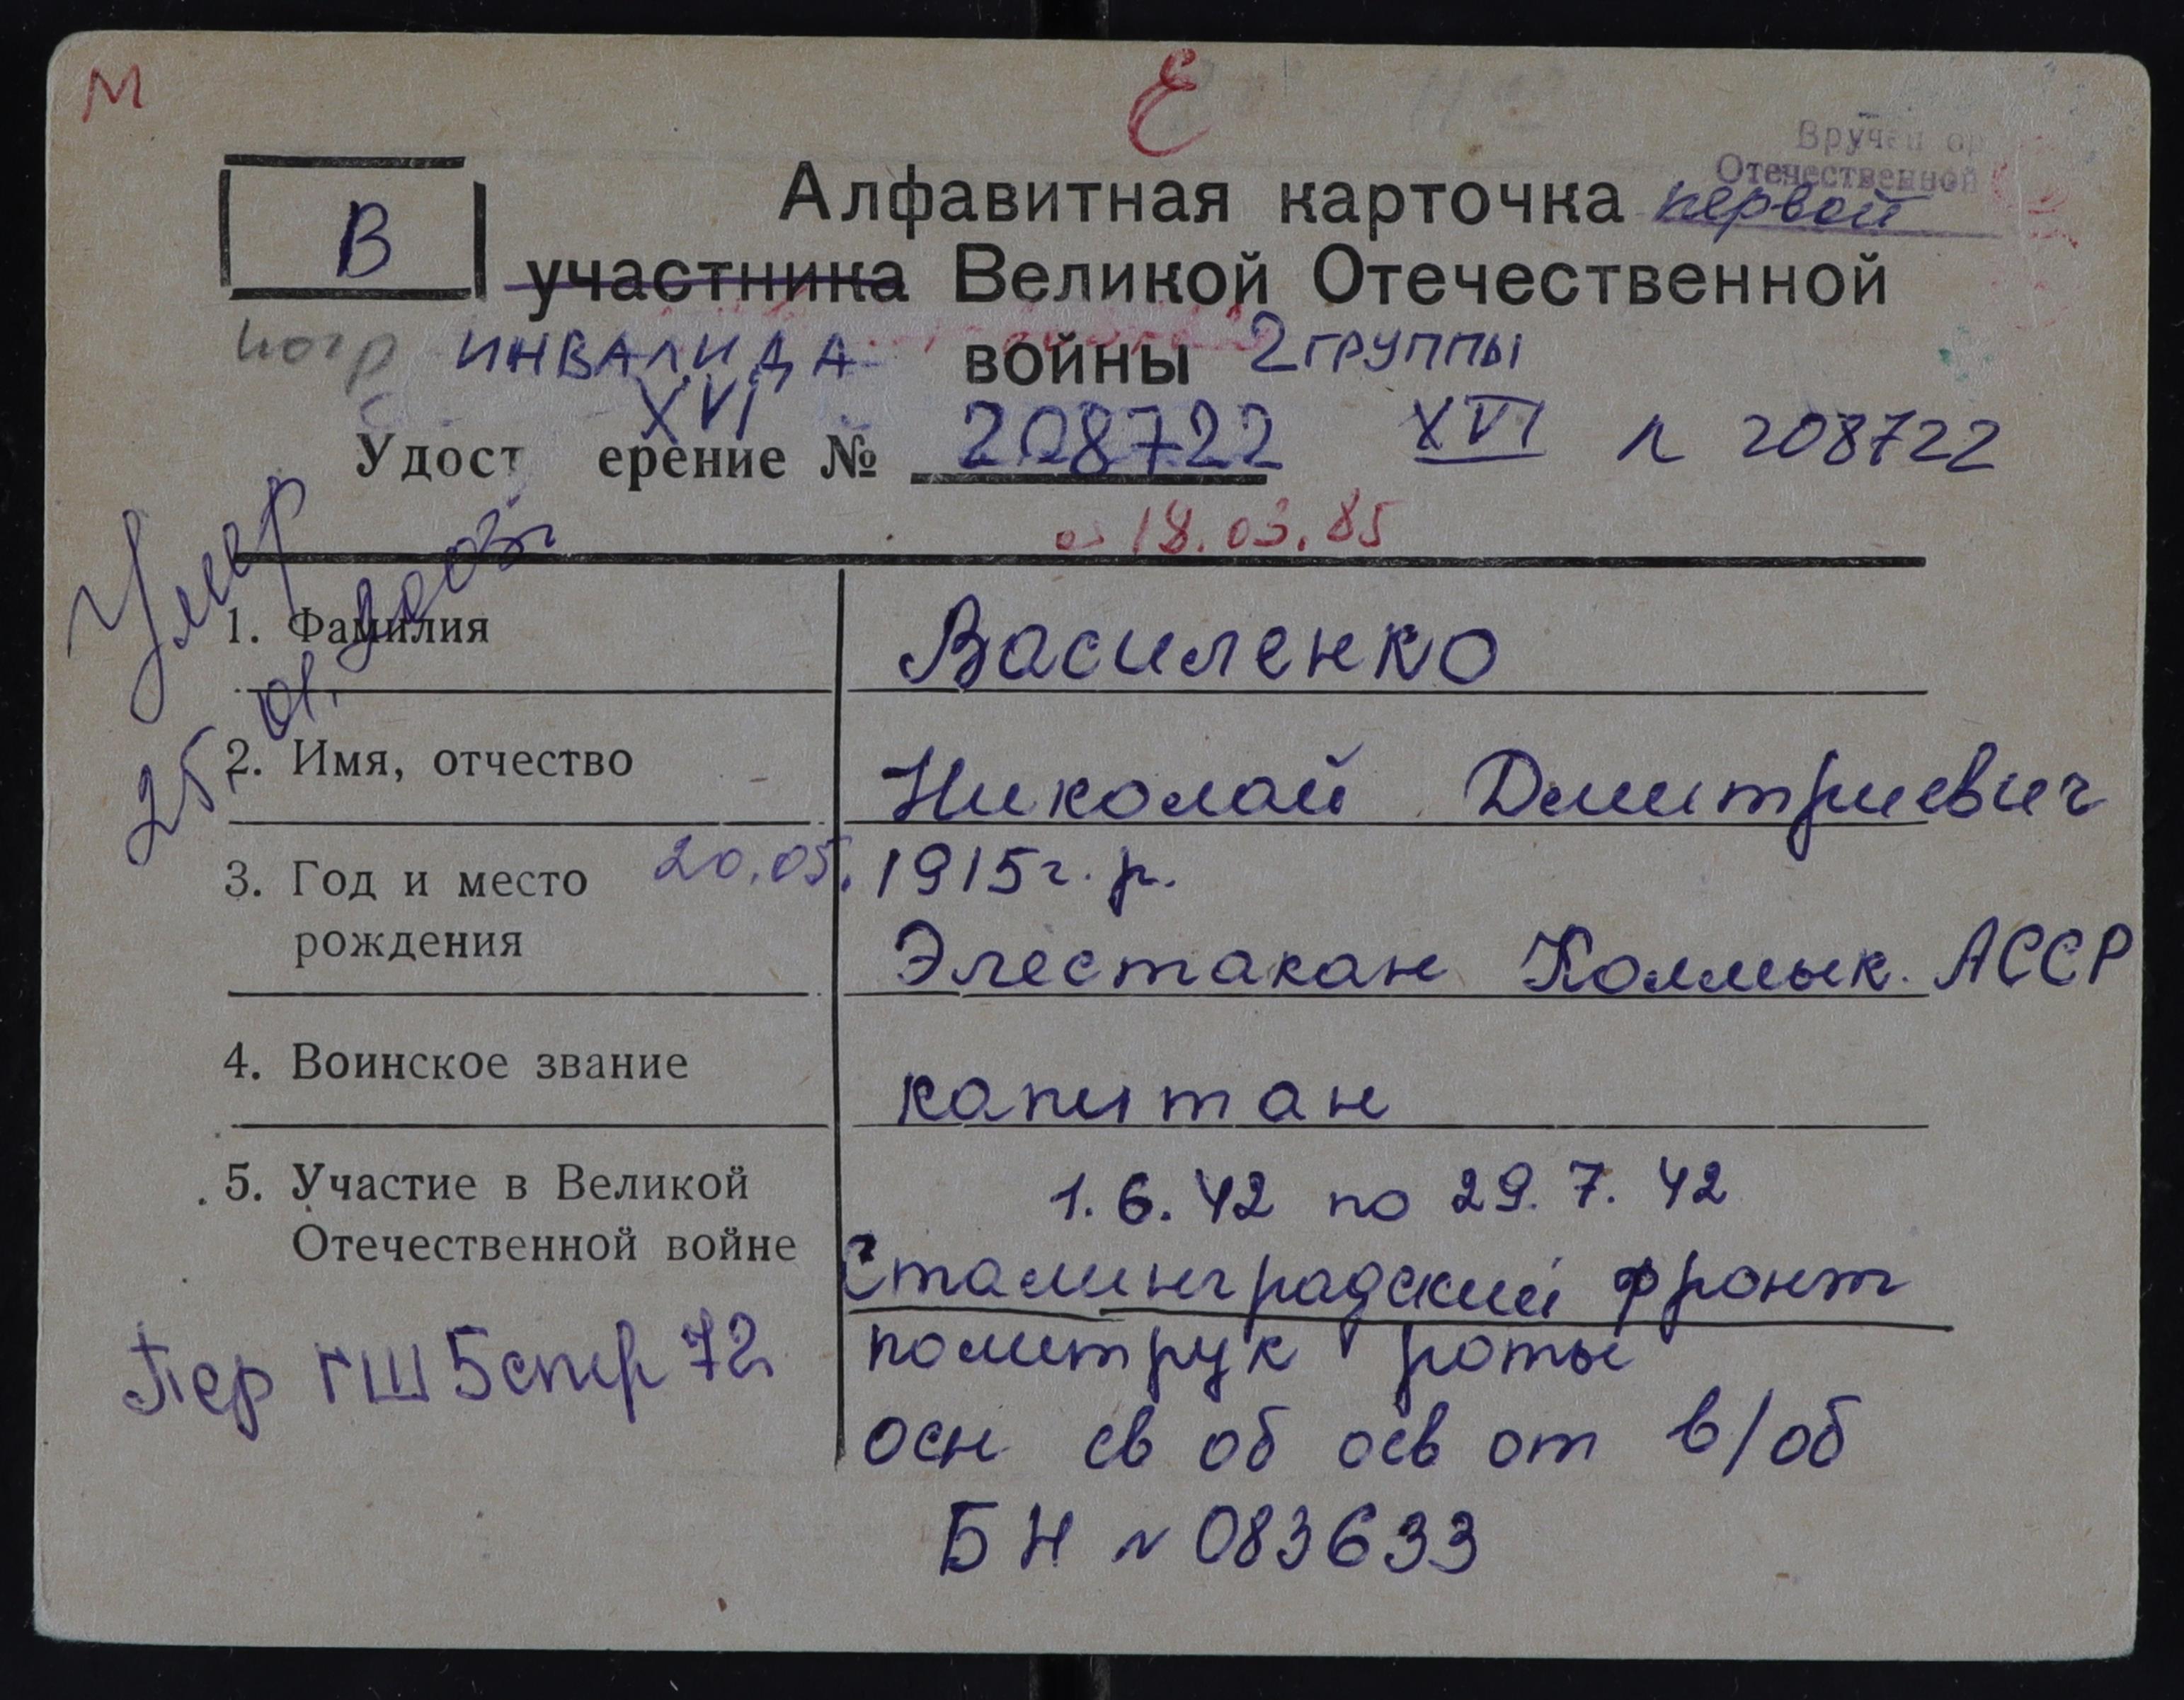 М
Е
Вручен ор
Отечественной
первой
В
Алфавитная карточка
участника Великой Отечественной
погр инвалида войны 2 группы
XVI
Удост ерение № 208722 XVI № 208722
от 18.03.85
Умер
25.01.2003г
1. Фамилия Василенко
2. Имя, отчество Николай Дмитриевич
3. Год и место 20.05. 1915 г.р.
рождения Элестакан Калмык. АССР
4. Воинское звание капитан
5. Участие в Великой 1.6.42 по 29.7.42
Отечественной войне Сталинградский фронт
политрук роты
Пер ГШ 5 стр 72
осн св об осв от в/об
БН № 083633